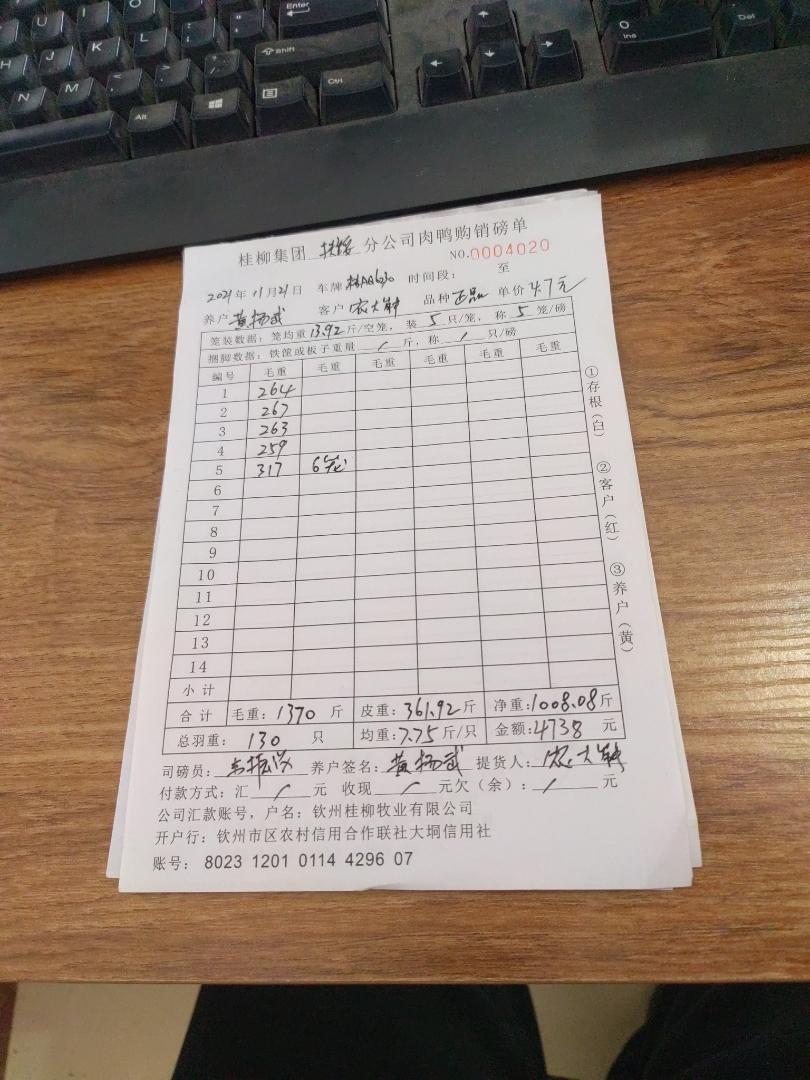 U I O
Enter
H J K L
Shift
N M
Alt
Ctrl
0
Ins
Del
桂柳集团 扶绥 分公司肉鸭购销磅单
NO.0004020
2021年11月21日 车牌 时间段： 至
养户 黄扬武 客户 农大 品种 正品 单价 4.7元
笼装数据：笼均重13.92斤/空笼，装 5 只/笼，称 5 笼/磅
捆脚数据：铁筐或板子重量 / 斤，称 / 只/磅
编号 毛重 毛重 毛重 毛重 毛重 毛重
1 264
2 267
3 263
4 259
5 317 6笼
6
7
8
9
10
11
12
13
14
小计
合计 毛重：1370 斤 皮重：361.92斤 净重：1008.08斤
总羽重： 130 只 均重：7.75斤/只 金额：4738 元
司磅员： 养户签名：黄扬武 提货人：农大
付款方式：汇 / 元 收现 / 元欠（余）：/ 元
公司汇款账号，户名：钦州桂柳牧业有限公司
开户行：钦州市区农村信用合作联社大垌信用社
账号： 8023 1201 0114 4296 07
①存根（白）
②客户（红）
③养户（黄）